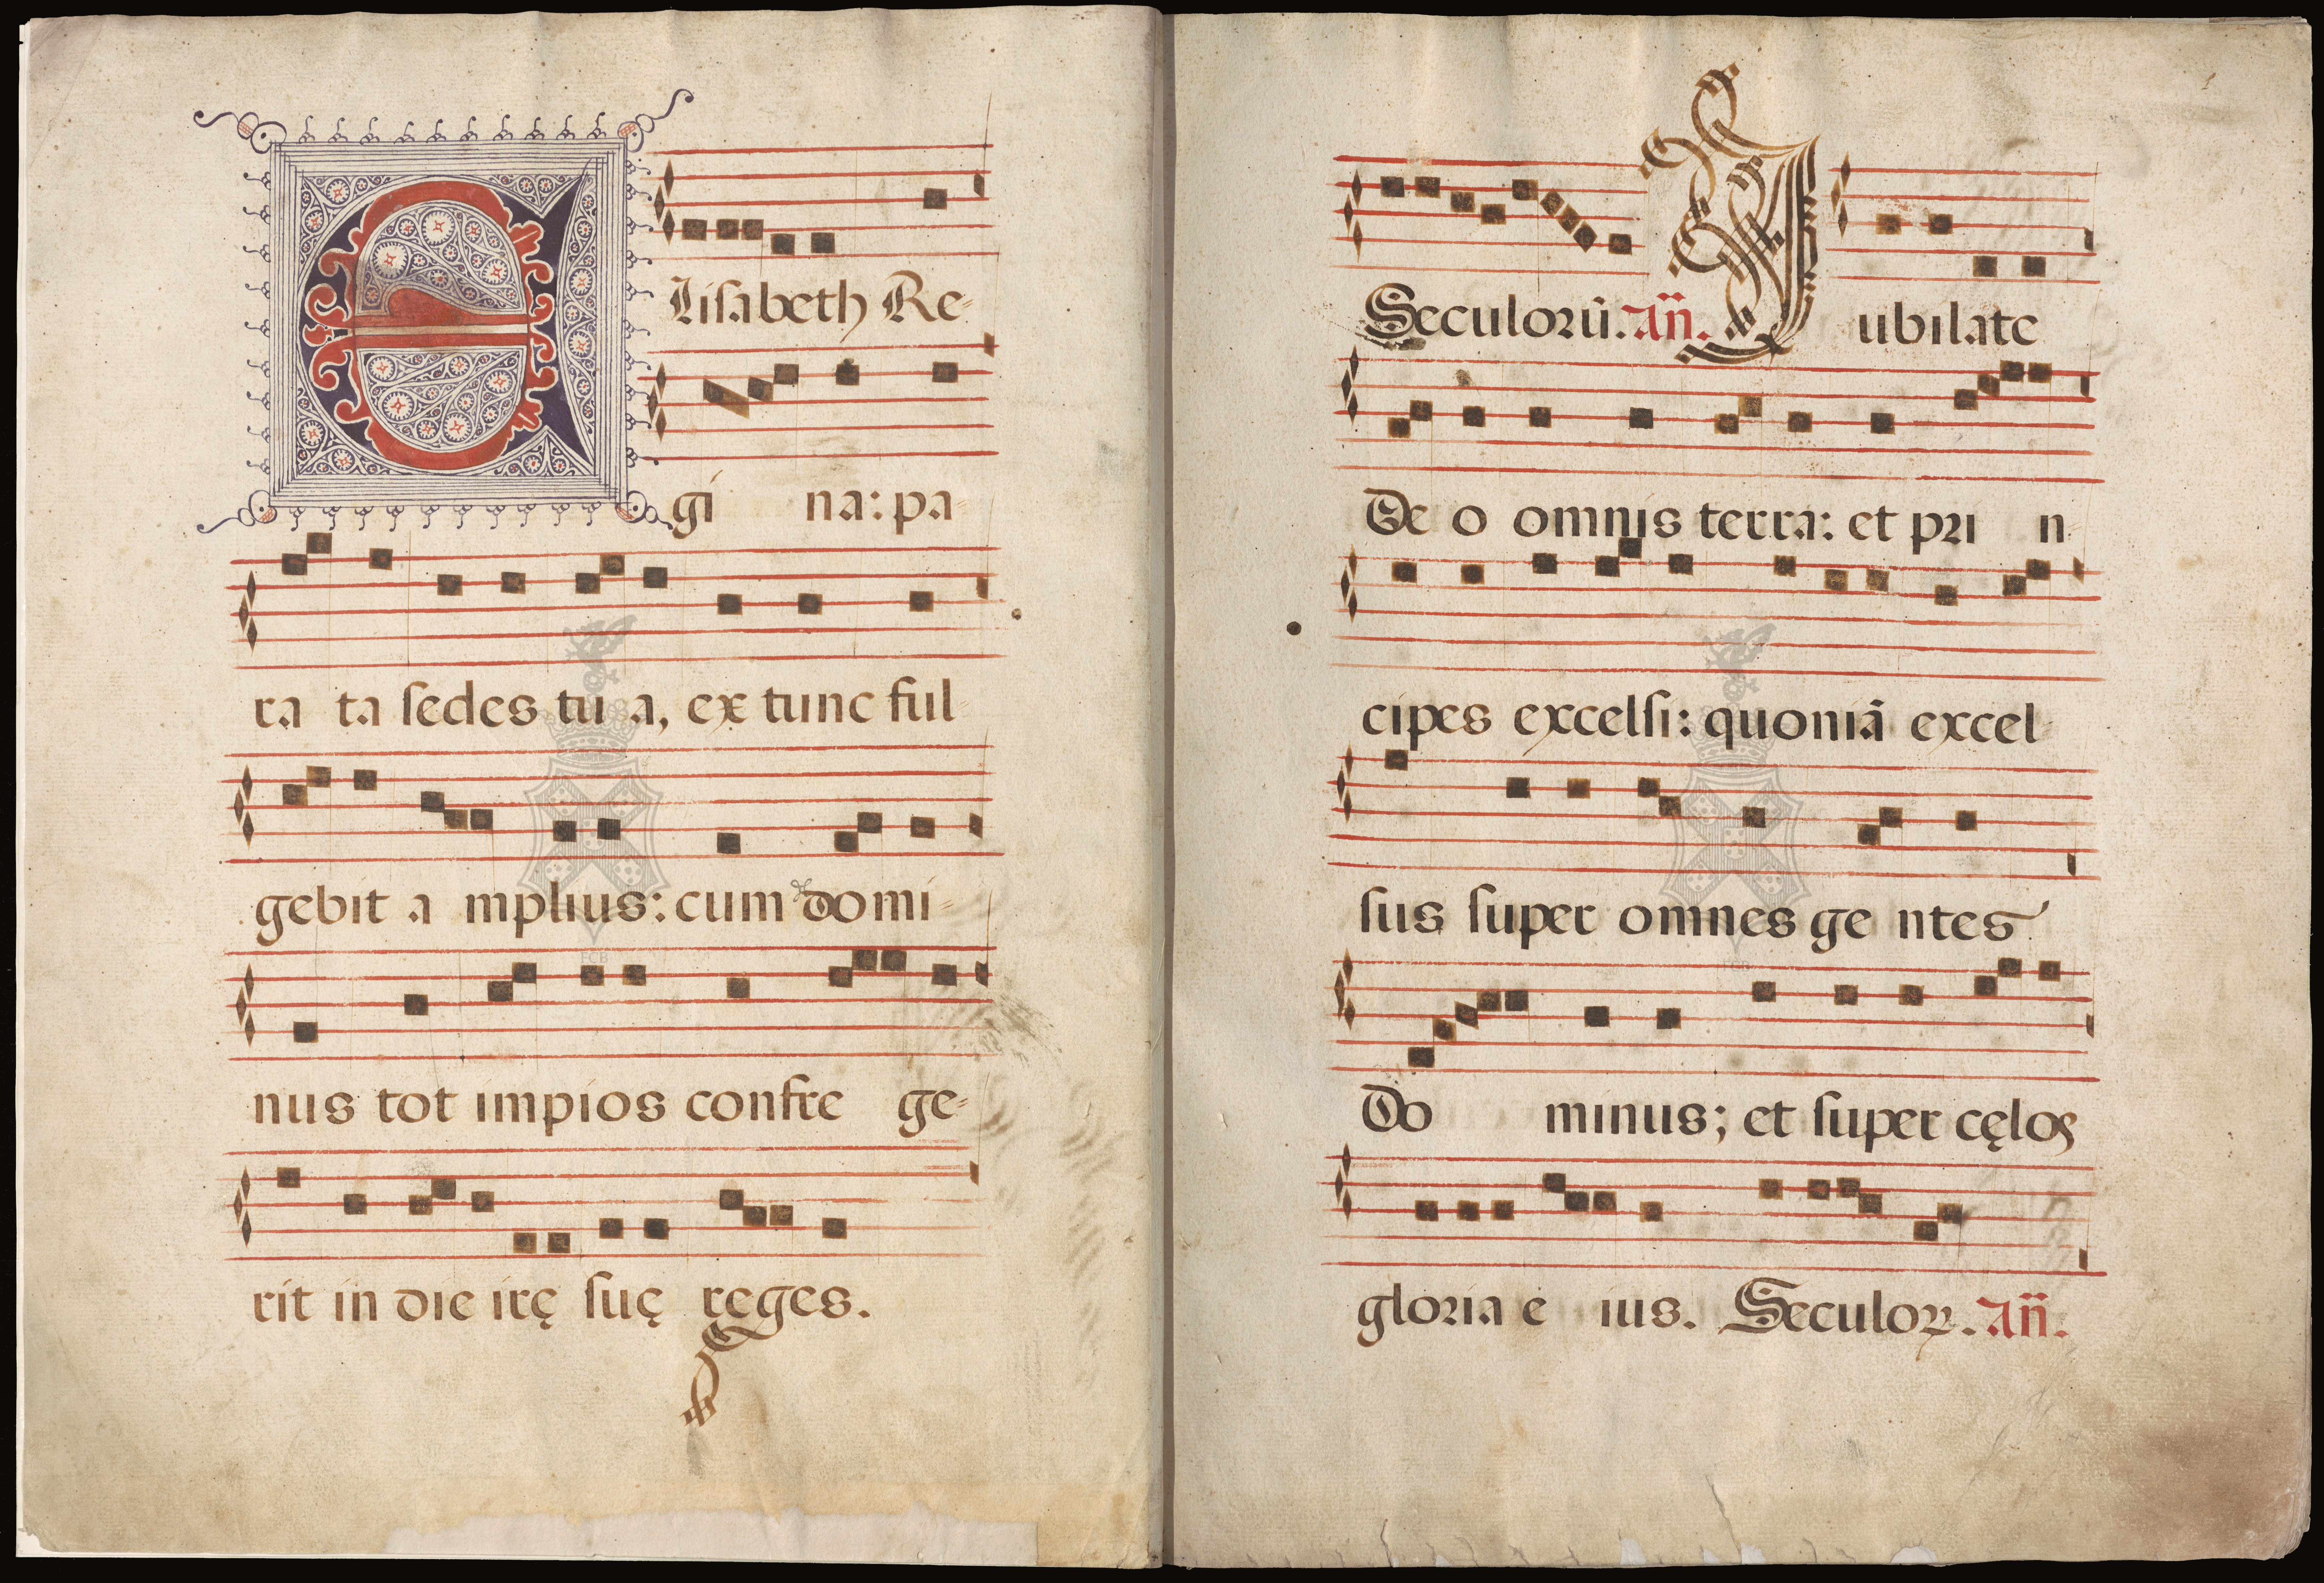 Elisabeth Re-
gi na: pa-
ra ta ſedes tu a, ex tunc ful-
gebit a mplius: cum domi-
nus tot impios confre ge-
rit in die irę ſuę reges.
Seculorū. Añ. Jubilate
De o omnis terra: et pri n-
cipes excelſi: quoniã excel-
ſus ſuper omnes ge ntes
Do minus; et ſuper cęlos
gloria e ius. Seculoꝝ. Añ.